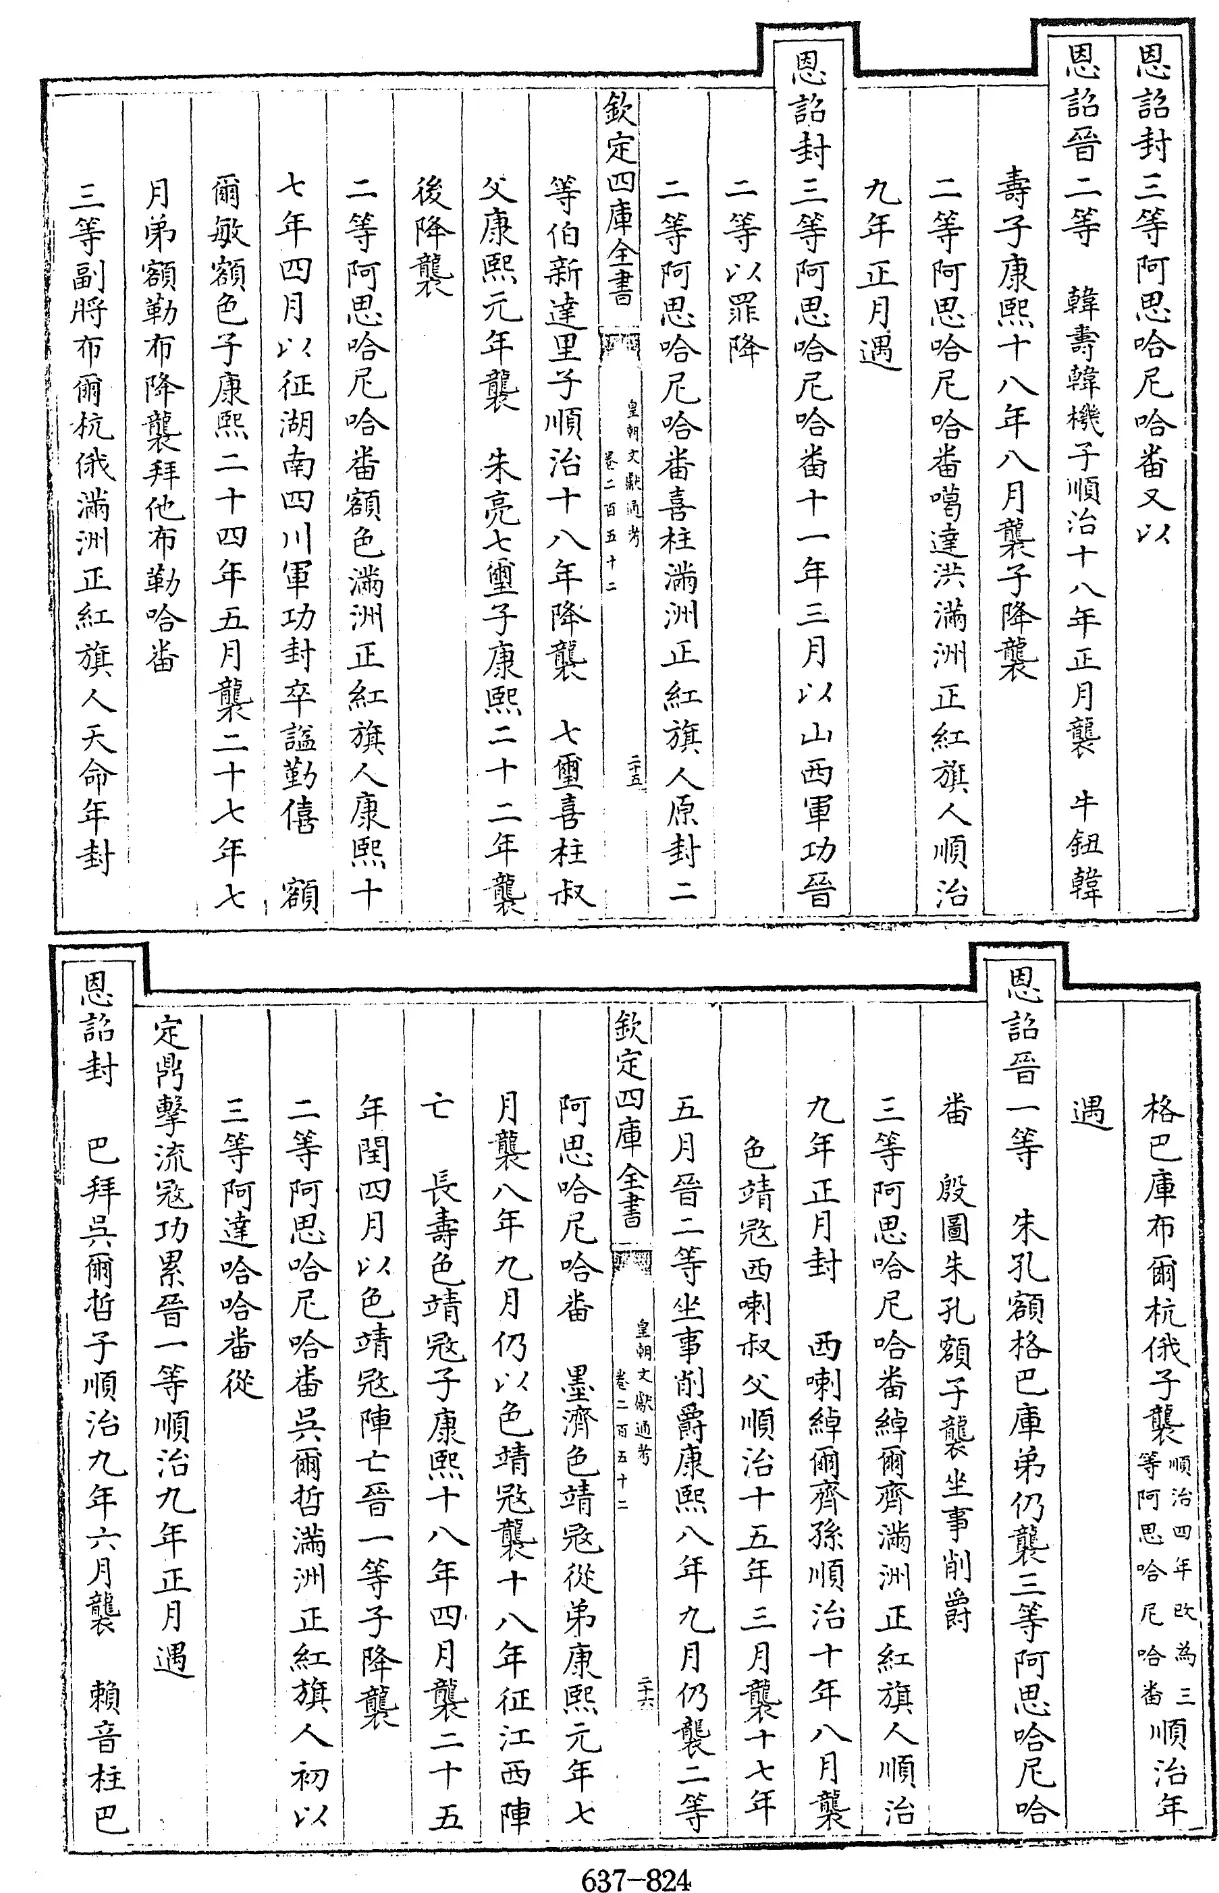 恩詔封三等阿思哈尼哈番又以
恩詔晉二等　韓壽韓機子順治十八年正月襲　牛鈕韓
壽子康熙十八年八月襲子降襲
二等阿思哈尼哈番噶達洪滿洲正紅旗人順治
九年正月遇
恩詔封三等阿思哈尼哈番十一年三月以山西軍功晉
二等以罪降
二等阿思哈尼哈番喜柱滿洲正紅旗人原封二
欽定四庫全書
皇朝文獻通考
卷二百五十二
二十五
等伯新達里子順治十八年降襲　七壐喜柱叔
父康熙元年襲　朱亮七壐子康熙二十二年襲
後降襲
二等阿思哈尼哈番額色滿洲正紅旗人康熙十
七年四月以征湖南四川軍功封卒諡勤僖　額
爾敏額色子康熙二十四年五月襲二十七年七
月弟額勒布降襲拜他布勒哈番
三等副將布爾杭俄滿洲正紅旗人天命年封
格巴庫布爾杭俄子襲順治四年改為三等阿思哈尼哈番順治年
遇
恩詔晉一等　朱孔額格巴庫弟仍襲三等阿思哈尼哈
番　殷圖朱孔額子襲坐事削爵
三等阿思哈尼哈番綽爾齊滿洲正紅旗人順治
九年正月封　西喇綽爾齊孫順治十年八月襲
色靖㓂西喇叔父順治十五年三月襲十七年
五月晉二等坐事削爵康熙八年九月仍襲二等
欽定四庫全書
皇朝文獻通考
卷二百五十二
二十六
阿思哈尼哈番　墨濟色靖㓂從弟康熙元年七
月襲八年九月仍以色靖㓂襲十八年征江西陣
亡　長壽色靖㓂子康熙十八年四月襲二十五
年閏四月以色靖㓂陣亡晉一等子降襲
二等阿思哈尼哈番吳爾哲滿洲正紅旗人初以
三等阿達哈哈番從
定鼎擊流㓂功累晉一等順治九年正月遇
恩詔封　巴拜吳爾哲子順治九年六月襲　賴音柱巴
637-824